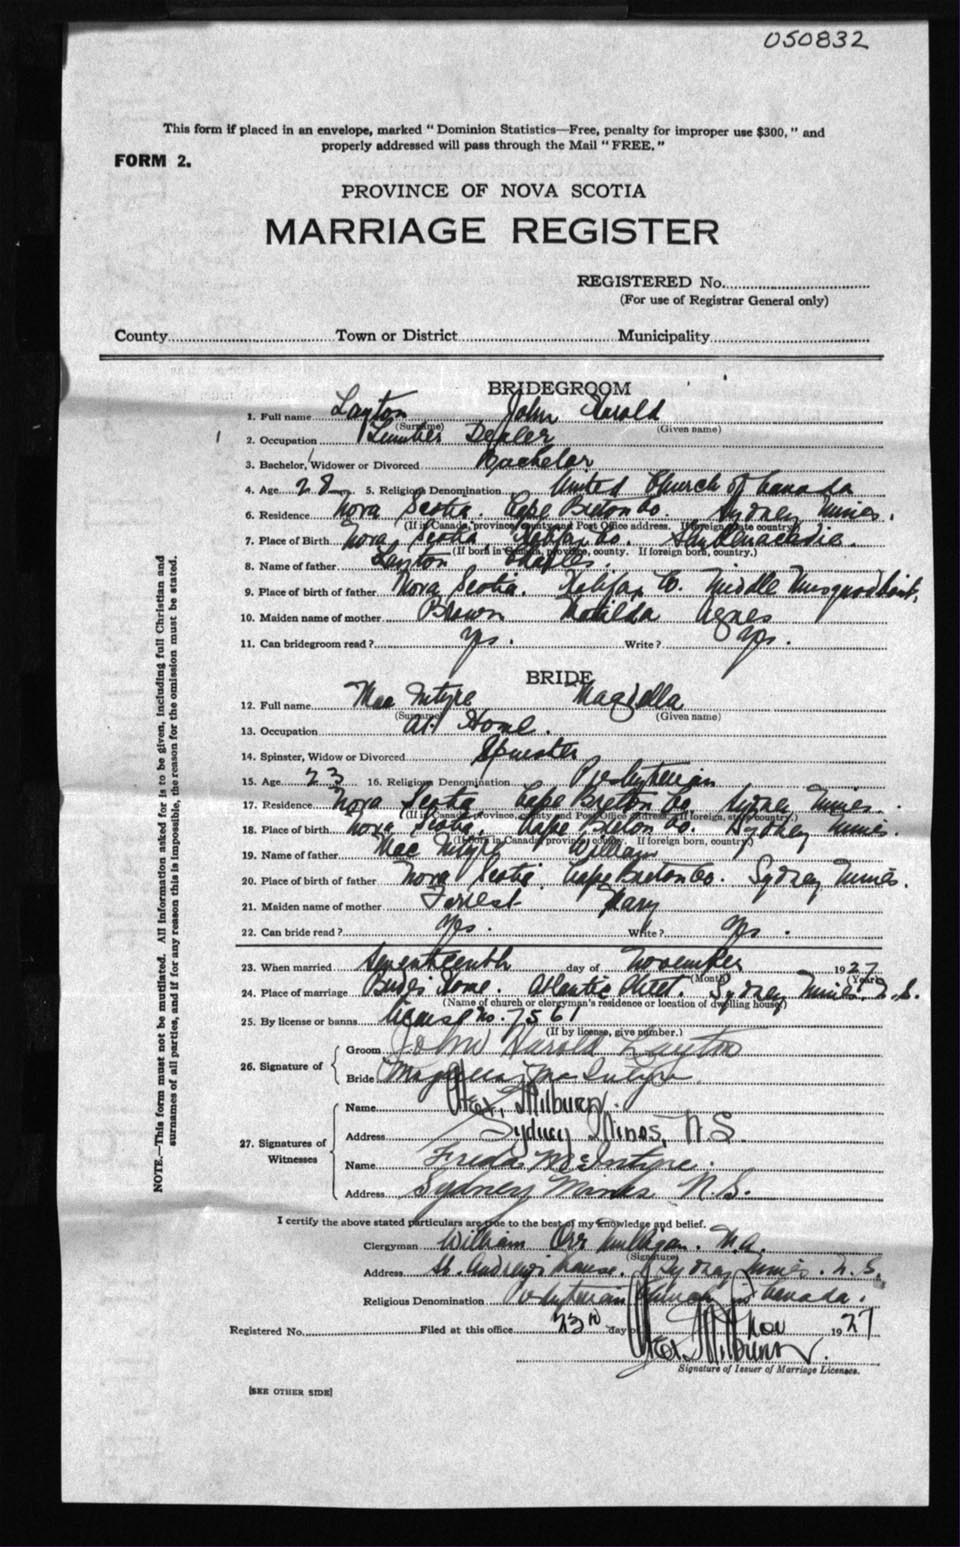 050832
This form if placed in an envelope, marked "Dominion Statistics—Free, penalty for improper use $300," and
properly addressed will pass through the Mail "FREE."
FORM 2.
PROVINCE OF NOVA SCOTIA
MARRIAGE REGISTER
REGISTERED No.
(For use of Registrar General only)
County Town or District Municipality
BRIDEGROOM
1. Full name Layton John Harold
(Surname) (Given name)
2. Occupation Lumber Dealer
3. Bachelor, Widower or Divorced Bachelor
4. Age 28 5. Religious Denomination United Church of Canada
6. Residence Nova Scotia. Cape Breton Co. Sydney Mines.
(If in Canada, province, county and Post Office address. If foreign, state country.)
7. Place of Birth Nova Scotia, Halifax Co. Shubenacadie.
(If born in Canada, province, county. If foreign born, country.)
8. Name of father Layton Charles.
9. Place of birth of father Nova Scotia. Halifax Co. Middle Musquodoboit.
10. Maiden name of mother Brown Matilda Agnes
11. Can bridegroom read? Yes. Write? Yes.
BRIDE
12. Full name MacIntyre Magdella
(Surname) (Given name)
13. Occupation At Home.
14. Spinster, Widow or Divorced Spinster
15. Age 23 16. Religious Denomination Presbyterian
17. Residence Nova Scotia Cape Breton Co. Sydney Mines.
(If in Canada, province, county and Post Office address. If foreign, state country.)
18. Place of birth Nova Scotia. Cape Breton Co. Sydney Mines.
(If born in Canada, province, county. If foreign born, country.)
19. Name of father MacIntyre William
20. Place of birth of father Nova Scotia Cape Breton Co. Sydney Mines.
21. Maiden name of mother Forrest Mary
22. Can bride read? Yes. Write? Yes.
23. When married Seventeenth day of November 1927
(Month) (Year)
24. Place of marriage Brides Home. Atlantic Street. Sydney Mines. N.S.
(Name of church or clergyman's residence or location of dwelling house)
25. By license or banns License No. 7561
(If by license, give number.)
26. Signature of
Groom John Harold Layton
Bride MacIntyre
27. Signatures of Witnesses
Name Milburn.
Address Sydney Mines, N S
Name Freda McIntyre.
Address Sydney Mines N.S.
I certify the above stated particulars are true to the best of my knowledge and belief.
Clergyman William Orr Mulligan. M.A.
(Signature)
Address St. Andrew's Manse. Sydney Mines. N.S.
Religious Denomination Presbyterian Church in Canada.
Registered No. Filed at this office 23rd day of Nov 1927
Milburn.
Signature of Issuer of Marriage Licenses.
[SEE OTHER SIDE]
NOTE.—This form must not be mutilated. All information asked for is to be given, including full Christian and
surnames of all parties, and if for any reason this is impossible, the reason for the omission must be stated.